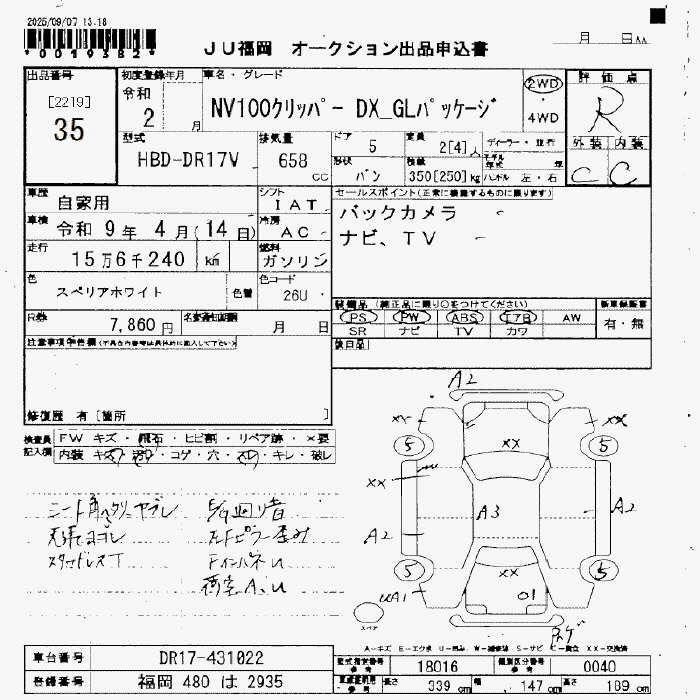 2025/09/07 13.18
*0019382*
JU福岡 オークション出品申込書
月 日
出品番号
[2219]
35
初度登録年月
令和
2 月
車名・グレード
NV100クリッパー DX_GLパッケージ
2WD
4WD
評価点
R
外装 内装
C C
型式
HBD-DR17V
排気量
658 cc
ドア
5
定員
2[4]人
形状
バン
積載
350[250]kg
ハンドル 左・右
車歴
自家用
シフト
IAT
車検
令和 9年 4月(14日)
冷房
AC
走行
15万6千240 km
燃料
ガソリン
色
スペリアホワイト
色替
色コード
26U
R券
7,860円
月 日
セールスポイント(正常に機能するものに限ります)
バックカメラ
ナビ、TV
装備品(純正品に限り○をつけてください)
PS PW ABS エアB AW
SR ナビ TV カワ
新車保証書
有・無
後日品
注意事項
修復歴 有[箇所 ]
検査員
記入欄
FW キズ・飛石・ヒビ割・リペア跡・×要
内装 キズ・コゲ・穴・キレ・破レ
シート
天張ヨゴレ
スタッドレスT
荷室A、U
A2
XX
XX
5
5
XX
XX
A3
A2
A2
5
5
XX
UA1
01
スペア
サゲ
A-キズ E-エクボ U-凹み W-補修跡 S-サビ C-腐食 XX-交換済
車台番号
DR17-431022
登録番号
福岡 480 は 2935
型式指定番号
18016
類別区分番号
0040
長さ 339 cm
幅 147 cm
高さ 189 cm